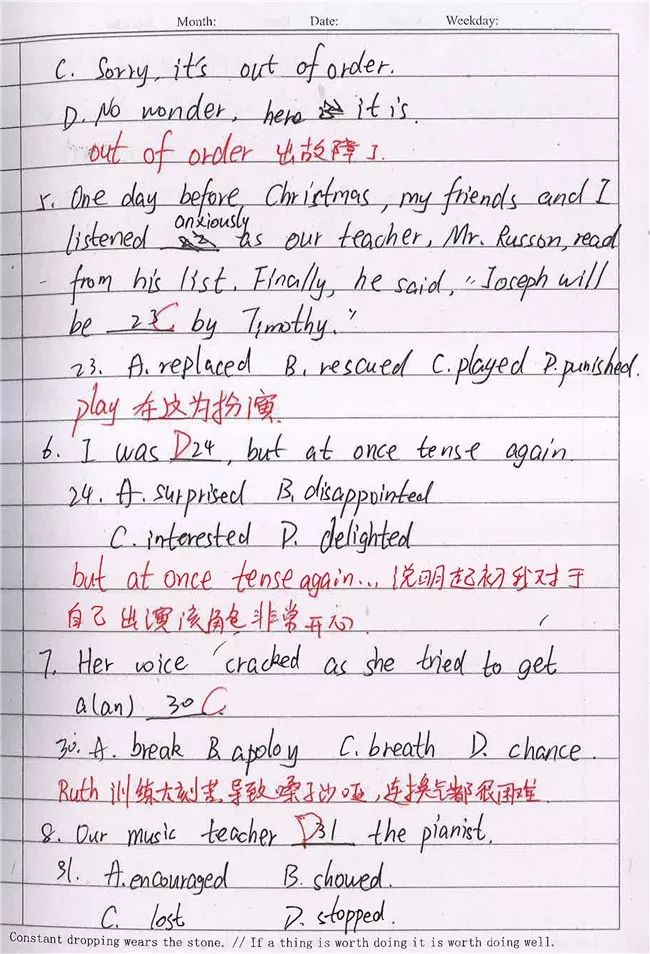 Month: Date: Weekday:
C. Sorry, it's out of order.
D. No wonder, here it is.
out of order 出故障了.
5. One day before, Christmas, my friends and I
listened anxiously as our teacher, Mr. Russon, read
from his list. Finally, he said, "Joseph will
be 23 C by Timothy."
23. A. replaced B. rescued C. played D. punished.
play 在这为扮演
6. I was D 24, but at once tense again.
24. A. surprised B. disappointed
C. interested D. delighted
but at once tense again... 说明起初我对于
自己出演该角色非常开心.
7. Her voice cracked as she tried to get
a(an) 30 C.
30. A. break B. apoloy C. breath D. chance.
Ruth 训练太刻苦,导致嗓子沙哑,连换气都很困难.
8. Our music teacher D 31 the pianist.
31. A. encouraged B. showed.
C. lost D. stopped.
Constant dropping wears the stone. // If a thing is worth doing it is worth doing well.